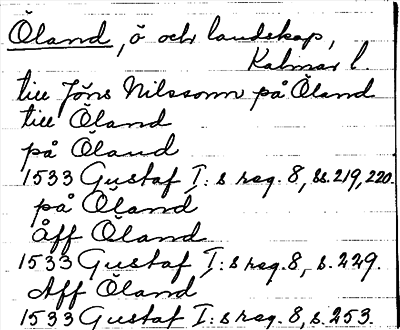 Öland, ö och landskap,
Kalmar l.
till Jöns Nilssonn på Öland
till Öland
på Öland
1533 Gustaf I:s reg. 8, ss. 219, 220.
på Öland
Åff Öland
1533 Gustaf I:s reg. 8, s. 229.
Aff Öland
1533 Gustaf I:s reg. 8, s. 253.